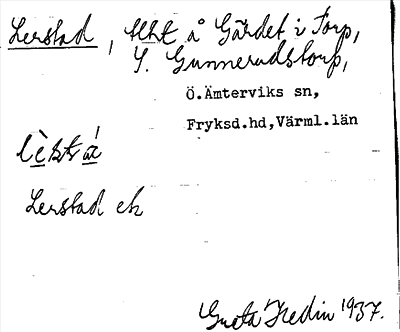 Lerstad, tlht å Gärdet i Torp,
S. Gunnerudstorp,
Ö.Ämterviks sn,
Fryksd.hd,Värml.län
Lerstad ek
Greta Hedin 1937.